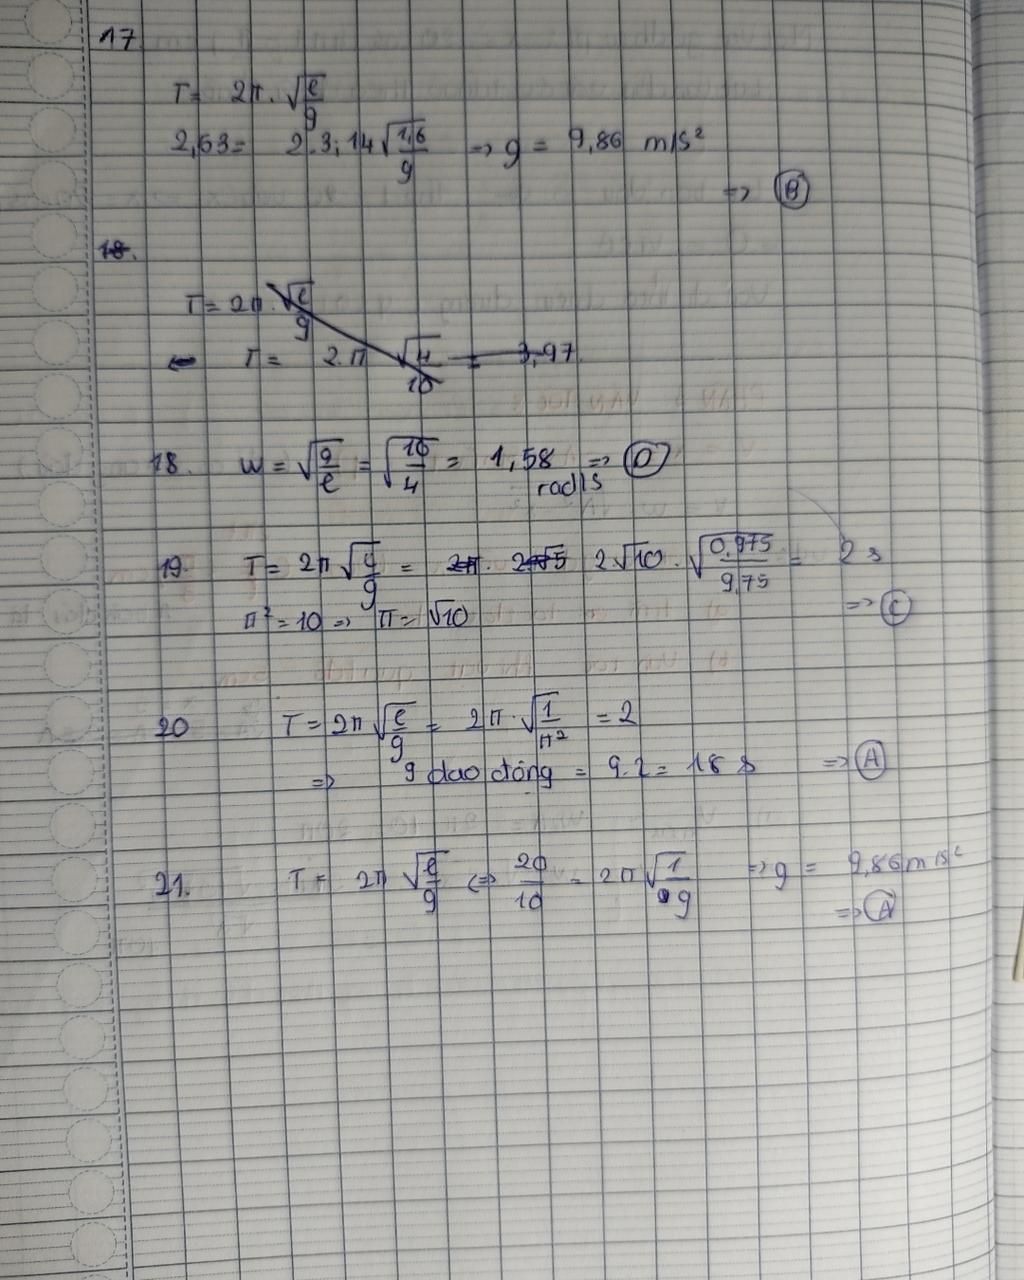 17
T = 2π. √(l/g)
2,63 = 2.3,14 √(1,6/g) => g = 9,86 m/s²
=> B
18.
T = 2π. √(l/g)
T = 2.π √(4/10) = 3,97
18. w = √(g/l) = √(10/4) = 1,58 => D
rad/s
19. T = 2π √(l/g) = 2π. 2√5 2√10 . √(0,975/9,75) = 2 s
=> C
π² = 10 => π = √10
20 T = 2π √(l/g) = 2π . √(1/π²) = 2
=> 9 dao động = 9.2 = 18 s => A
21. T = 2π √(l/g) <=> 20/10 = 2π √(1/g) => g = 9,86 m/s²
=> A